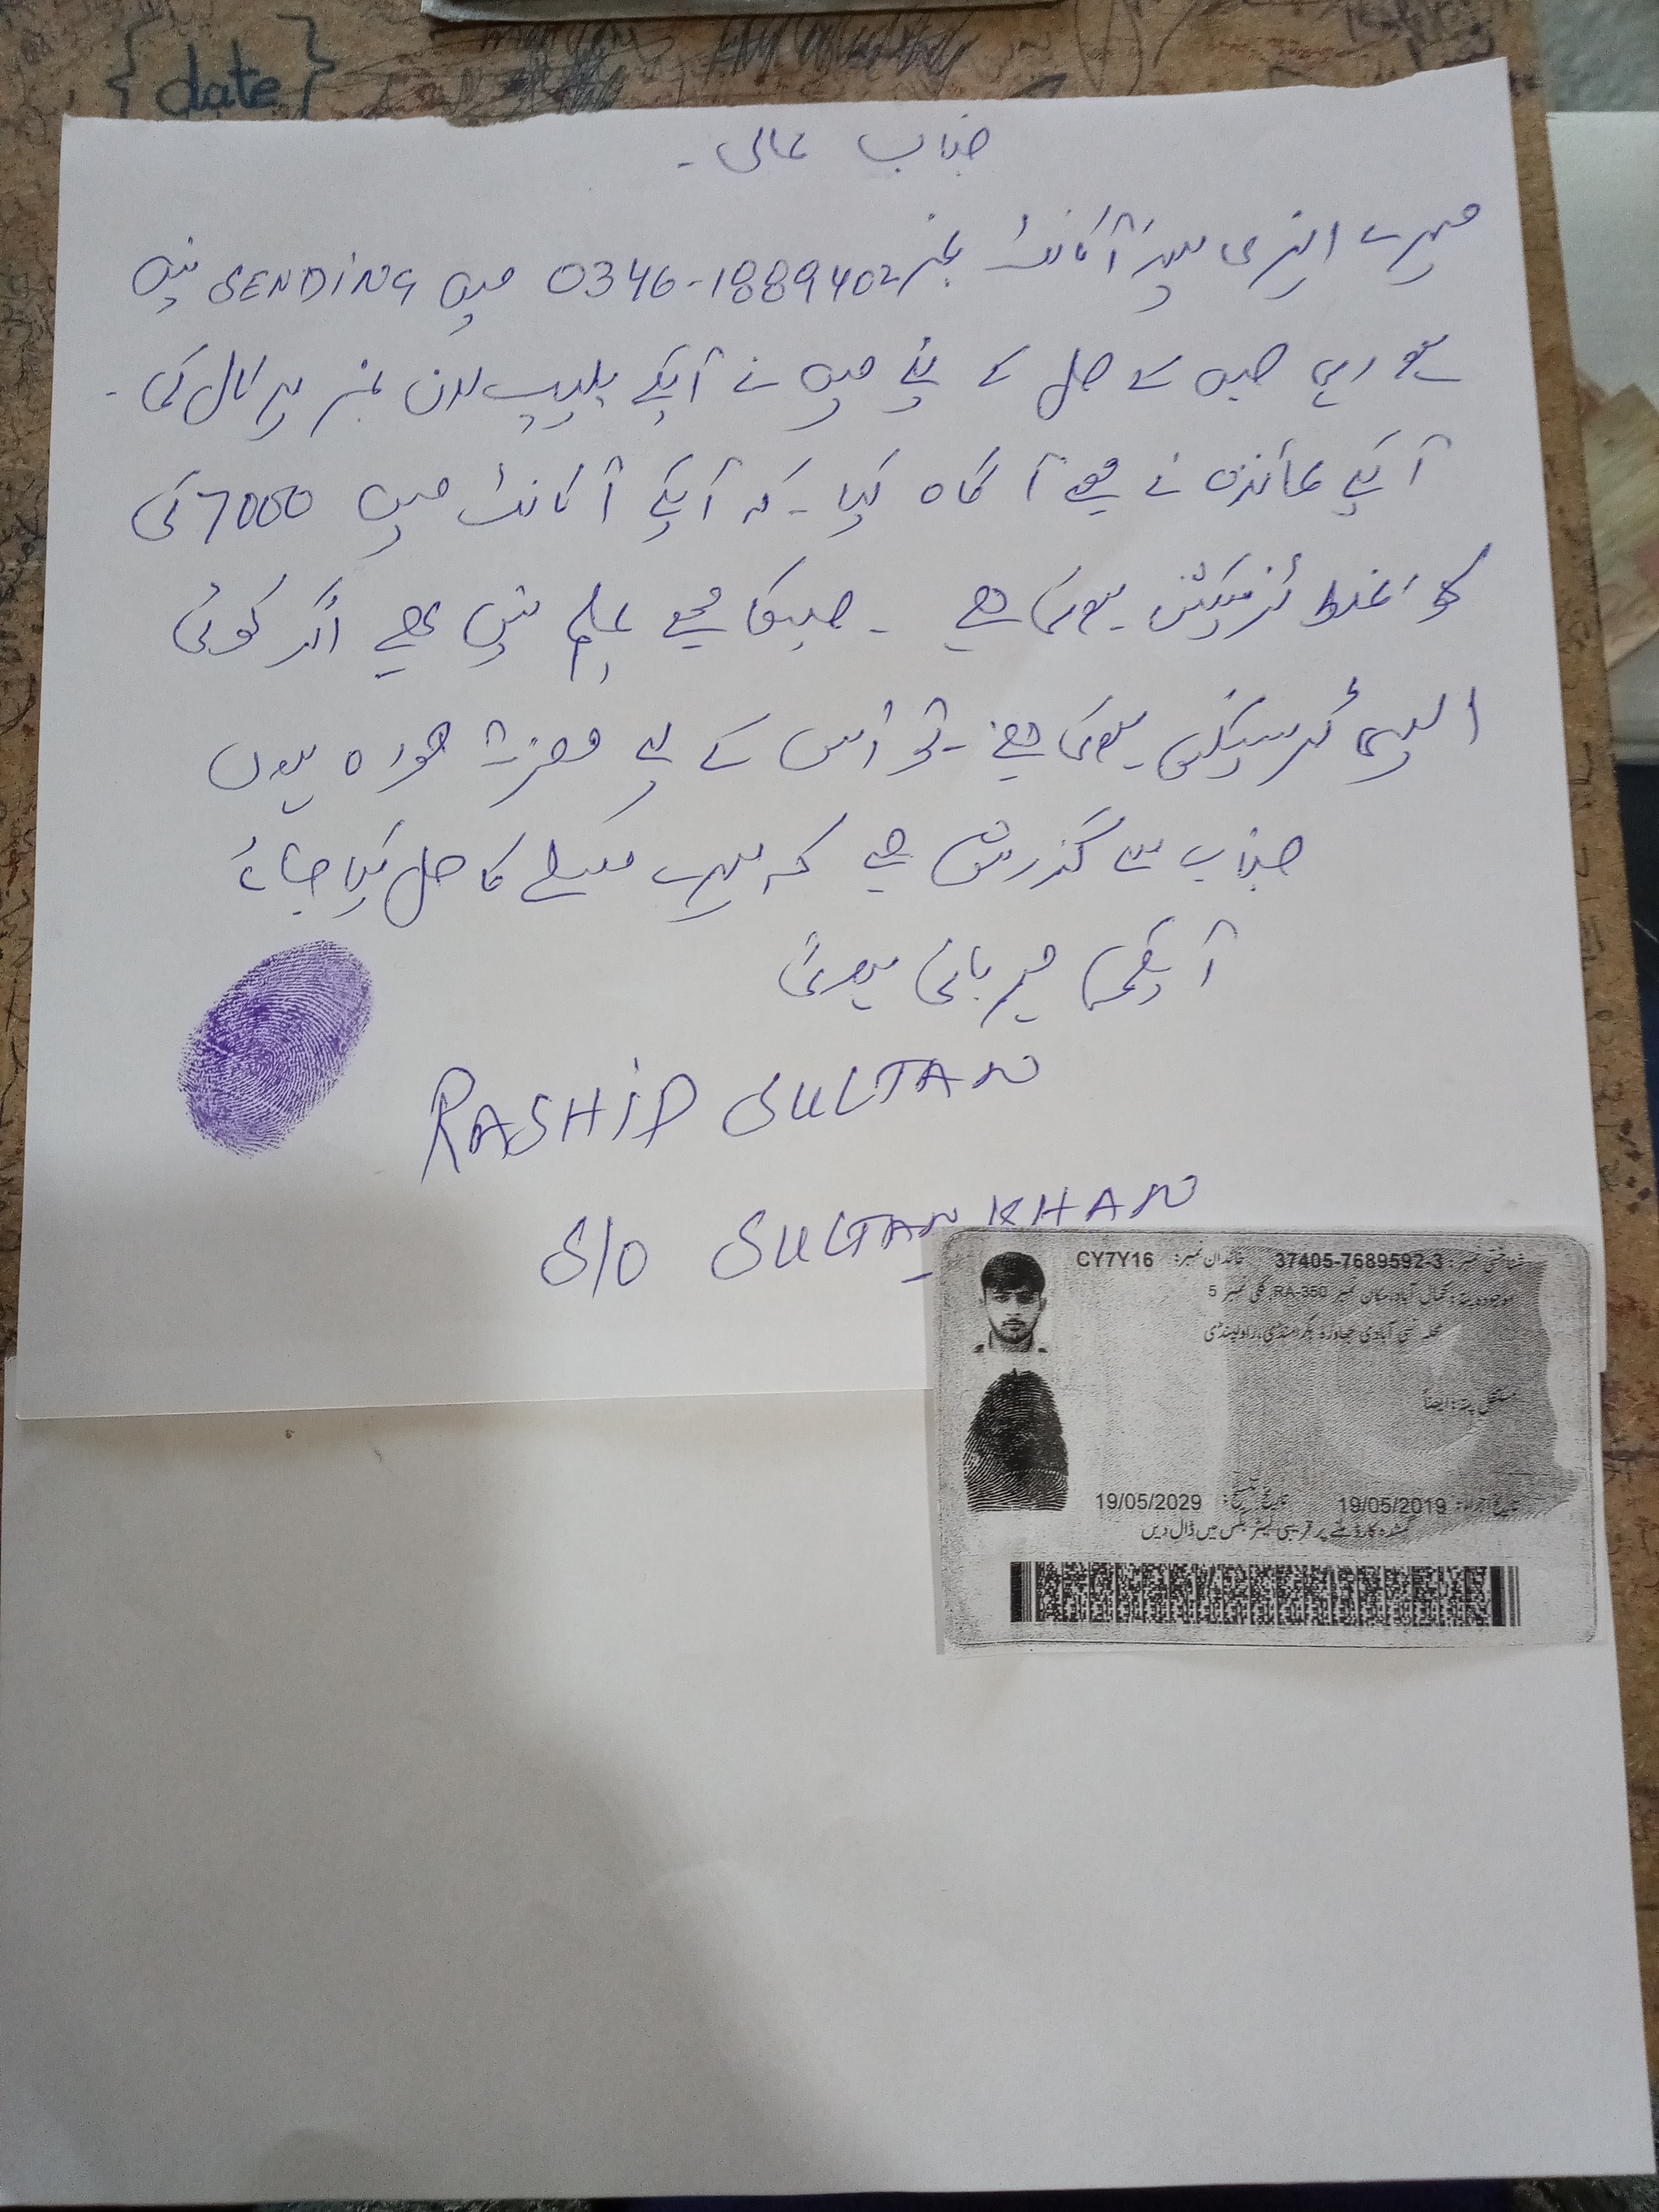 {date}
جناب عالی ۔
میرے ایزی پیسہ اکانٹ نمبر 0346-1889402 میں SENDING نہیں
ہو رہی جس کے حل کے لئے میں نے آپکے ہلیپ لائن نمبر پر کال کی ۔
آپکے نمائندہ نے مجھے آگاہ کیا ۔ کہ آپکے آکانٹ میں 7000 کی
کوئی غلط ٹرنزیکشن ہوئی ہے ۔ جسکا مجھے علم نہیں ہے اگر کوئی
ایسی ٹرنسیکشن ہوئی ہے ۔ تو اُس کے لیے معزرت خواہ ہوں
جناب سے گذارش ہے کہ میرے مسلے کا حل کیا جائے
آپکی مہربانی ہوگی
RASHID SULTAN
S/O SULTAN KHAN
شناختی نمبر: 37405-7689592-3 خاندان نمبر: CY7Y16
موجودہ پتہ: کمال آباد، مکان نمبر RA-350، گلی نمبر 5
محلہ نئی آبادی جھاورہ بکرامنڈی، راولپنڈی
مستقل پتہ: ایضاً
تاریخ اجراء: 19/05/2019 تاریخ تنسیخ: 19/05/2029
گمشدہ کارڈ ملنے پر قریبی لیٹر بکس میں ڈال دیں